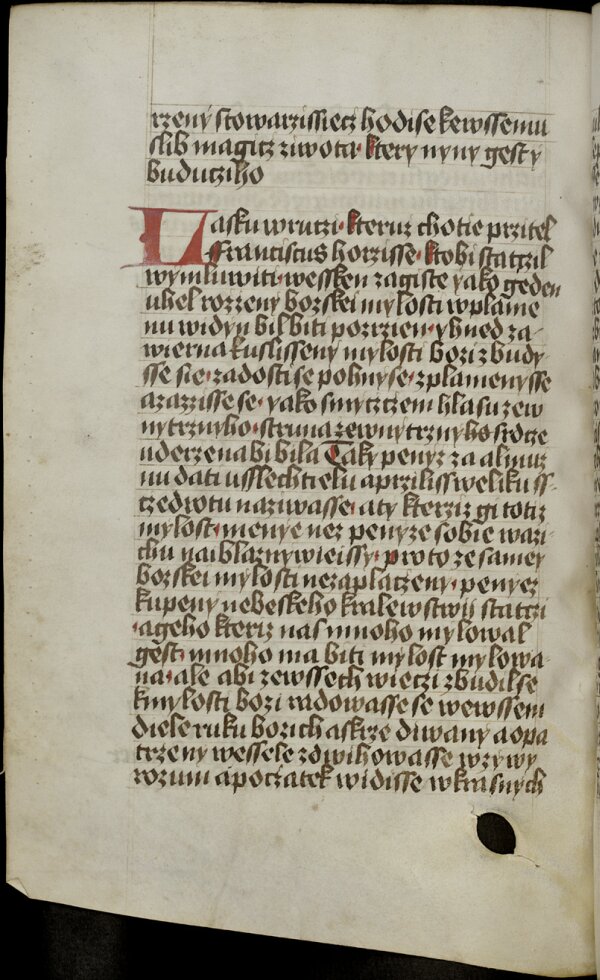 rzeny stowarzissiecz hodise kewssemu
slib magicz ziwota ktery nyny gest y
buduczího
Lasku wruczi kteruz chotie przitel
Franciscus horzisse ktobi staczil
wymluwiti wessken zagiste yako geden
uhel rozzeny bozskei mylosti wplame
nu widyn bil biti pozrzien yhned za
wierna kuslisseny mylosti bozi zbudy
sse sie zadosti se pohnyse zplamenysse
azazzisse se yako smyczczem hlasu zew
nytrznyho struna zewnytrznyho srdcze
uderzena bi bila Taky penyz za almuz
nu dati usslechtielu a przilissweliku ss
czedrotu naziwasse aty kterziz gi totiz
mylost menye nez penyze sobie wazi
chu naiblaznywieissy proto ze samey
bozskei mylosti nezaplaczeny penyez
kupeny nebeskeho kralewstwij staczi
ageho kteriz nas mnoho mylowal
gest mnoho ma biti mylost mylowa
na ale abi zewssech wieczi zbudilse
kmylosti bozi radowasse se wewssem
diele ruku bozich askrze diwany a opa
trzeny wessele zdwihowasse wzywy
rozum apoczatek widisse wkrasnych